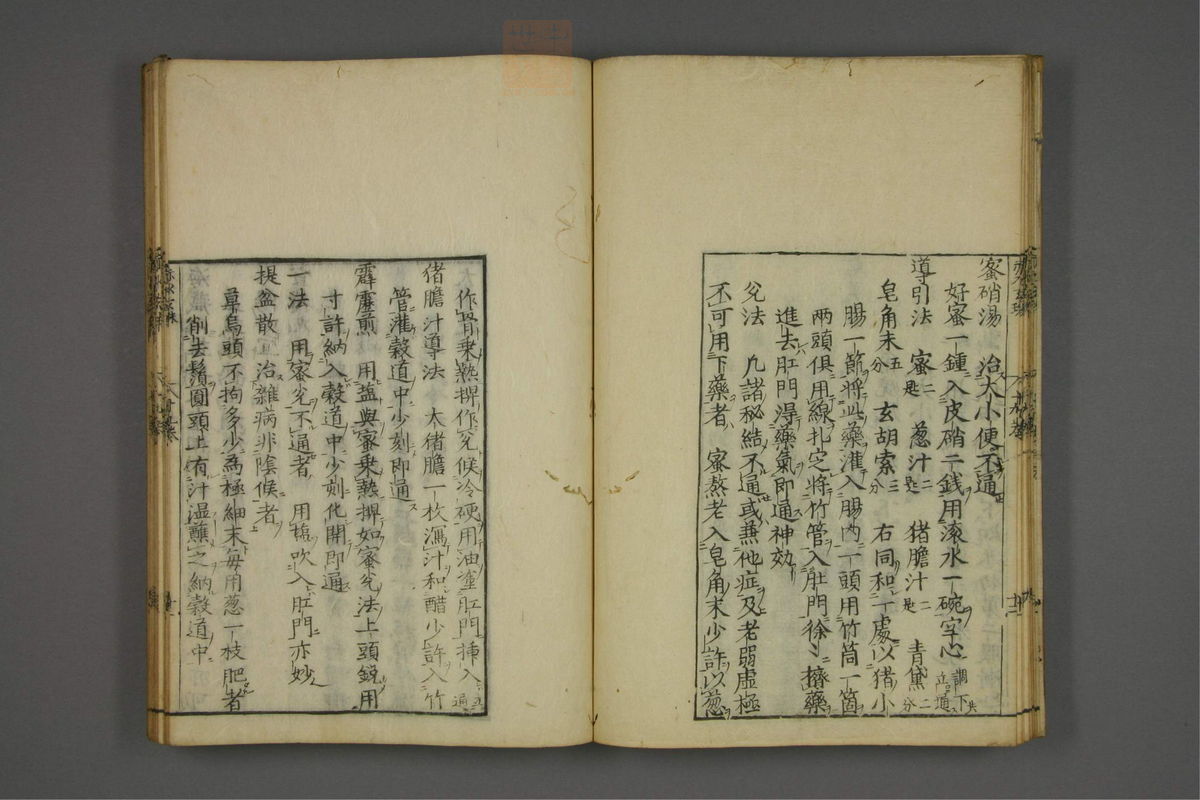 蜜硝湯 治大小便不通
好蜜一鍾入皮硝二銭用滾水一碗空心調下立通
導引法 蜜二匙 葱汁二匙 猪膽汁二匙 青黛二分
皂角末五分 玄胡索三分 右同和一處以猪小
腸一節將此藥灌入腸内一頭用竹筒一箇
兩頭俱用線扎定將竹管入肛門徐〻擠藥
進去肛門淂藥氣即通神効
兊法 凢諸秘結不通或兼他症及老弱虛極
不可用下藥者 蜜熬老入皂角末少許以葱
作骨乗熱捍作兊候冷硬用油塗肛門挿入立通
猪膽汁導法 大猪膽一枚瀉汁和醋少許入竹
管灌穀道中少刻即通
霹靂煎 用盐與蜜乗熱捍如蜜兊法上頭鋭用
寸許納入穀道中少刻化開即通
一法 用蜜兊不通者 用塩吹入肛門亦妙
提盆散 治雜病非陰候者
草烏頭不拘多少為極細末毎用葱一枝肥者
削去鬚圓頭上有汁温蘸之納穀道中